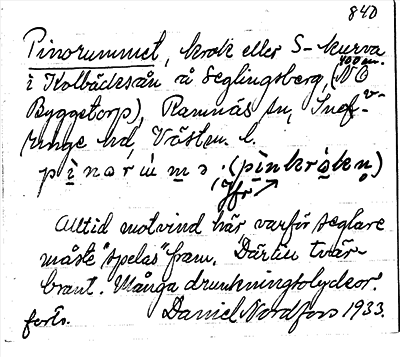 840
Pinorummet, krok eller S-kurva
i Kolbäcksån å Seglingsberg, (400 m. NO
Byggetorp), Ramnäs sn, Snef-v-
ringe hd, Västm. l.
pìnarúmə. (pìnkròkən)
(Jfr
Alltid motvind här varför seglare
måste "spelas" fram. Därtill tvär-
brant. Många drunkningsolyckor.
forts. Daniel Nordfors 1933.